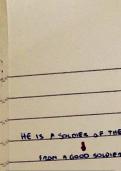 HE IS A SOLDIER OF THE
FROM A GOOD SOLDIER